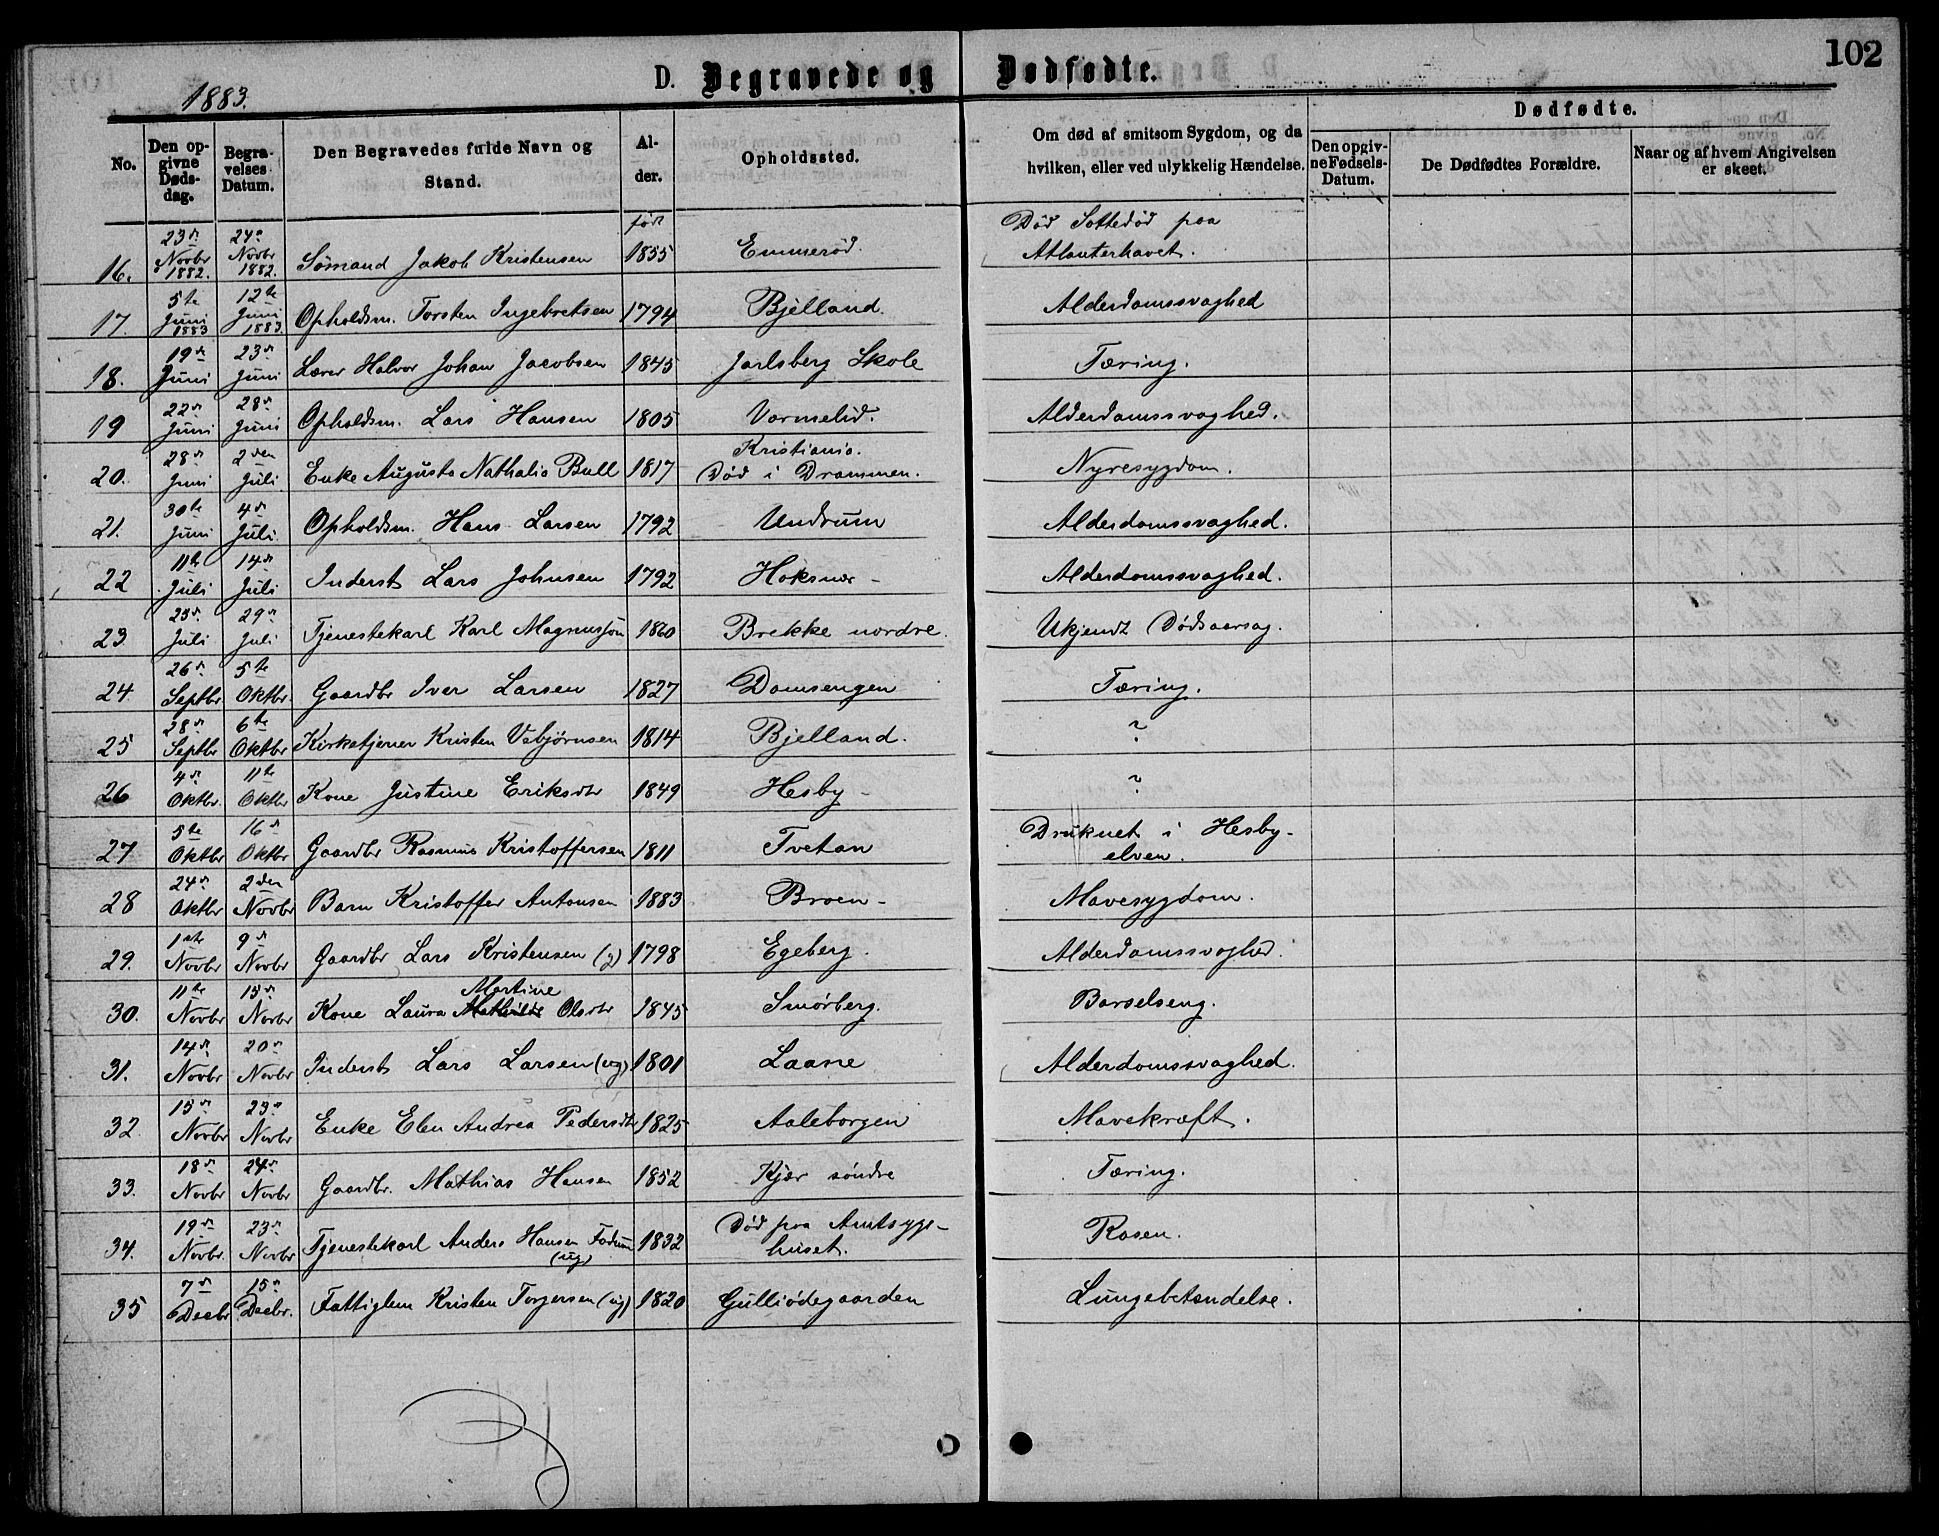 102
1883.
D. Begravede og Dødfødte.
No. Den opgivne Dødsdag. Begravelses Datum. Den Begravedes fulde Navn og Stand. Alder. Opholdssted. Om død af smitsom Sygdom, og da hvilken, eller ved ulykkelig Hændelse. Dødfødte. Den opgivne Fødsels-Datum. De Dødfødtes Forældre. Naar og af hvem Angivelsen er skeet.
16. 23de Novbr 1882. 24de Novbr 1882. Sømand Jakob Kristensen født 1855 Emmerød. Død Sottedød paa Atlanterhavet.
17. 5te Juni 1883 12te Juni 1883. Opholdsm. Torsten Ingebretsen 1794 Bjelland. Alderdomssvaghed
18. 19de Juni 23de Juni Lærer Halvor Johan Jacobsen 1845 Jarlsberg Skole Tæring.
19 22de Juni 28de Juni Opholdsm. Lars Hansen 1805 Vormelid. Alderdomssvaghed.
20. 28de Juni 2den Juli Enke Augusta Nathalia Bull 1817 Kristiania. Død i Drammen. Nyresygdom.
21. 30te Juni 4de Juli Opholdsm. Hans Larsen 1792 Undrum Alderdomssvaghed.
22 11te Juli 14de Juli Inderst Lars Johnsen 1792 Hoksnær - Alderdomssvaghed.
23 25de Juli 29de Juli Tjenestekarl Karl Magnussøn 1860 Brekke nordre. Ukjendt Dødsaarsag.
24. 26de Septbr 5te Oktbr. Gaardbr Iver Larsen 1827 Domsengen Tæring.
25 28de Septbr 6te Oktbr Kirketjener Kristen Vebjørnsen 1814 Bjelland. ?
26 4de Oktbr. 11te Oktbr Kone Justine Eriksdtr 1849 Hesby - ?
27 5te Oktbr 16de Oktbr Gaardbr Rasmus Kristoffersen 1811 Tvetan Druknet i Hesby-elven.
28 24de Oktbr 2den Novbr Barn Kristoffer Antonsen 1883 Broen - Mavesygdom.
29. 1ste Novbr 9de Novbr Gaardbr Lars Kristensen (g) 1798 Egeberg. Alderdomssvaghed.
30. 11te Novbr 15de Novbr Kone Laura Mathilde Martine Olsdtr 1845 Smørberg. Barselseng.
31. 14de Novbr 20de Novbr Inderst Lars Larsen (ug) 1801 Laane Alderdomssvaghed.
32 15de Novbr 23de Novbr Enke Elen Andrea Pedersdtr 1825 Aaleborgen Mavekræft.
33. 18de Novbr 24de Novbr Gaardbr. Mathias Hansen 1852 Kjær søndre Tæring.
34. 19de Novbr. 23de Novbr Tjenestekarl Anders Hansen Fadum (ug) 1832 Død paa Amtsyge-huset. Rosen.
35 7de Decbr 15de Decbr. Fattiglem Kristen Torgersen (ug) 1820 Gulliødegaarden Lungebetændelse.